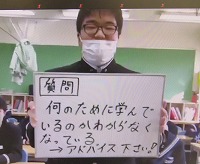 質問
何のために学んで
いるのかわからなく
なっている
→アドバイス下さい!